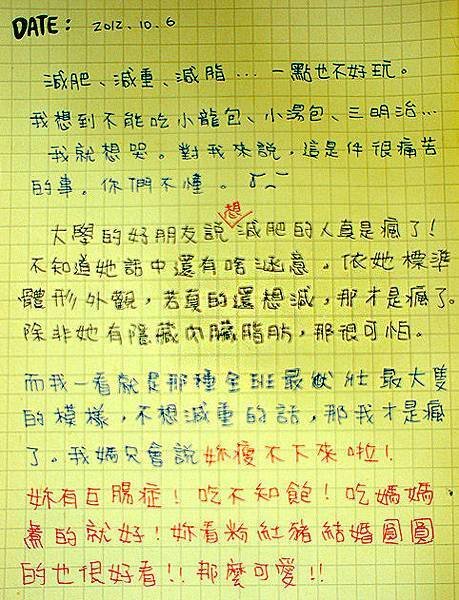 DATE: 2012.10.6
減肥、減重、減脂…一點也不好玩。
我想到不能吃小龍包、小湯包、三明治…
我就想哭。對我來說，這是件很痛苦
的事。你們不懂。
想
大學的好朋友說減肥的人真是瘋了!
不知道她話中還有啥涵意。依她標準
體形外觀，若真的還想減，那才是瘋了。
除非她有隱藏內臟脂肪，那很可怕。
而我一看就是那種全班最壯最大隻
的模樣，不想減重的話，那我才是瘋
了。我媽只會說妳瘦不下來啦!
妳有巨腸症!吃不知飽!吃媽媽
煮的就好!妳看粉紅豬結婚圓圓
的也很好看!!那麼可愛!!